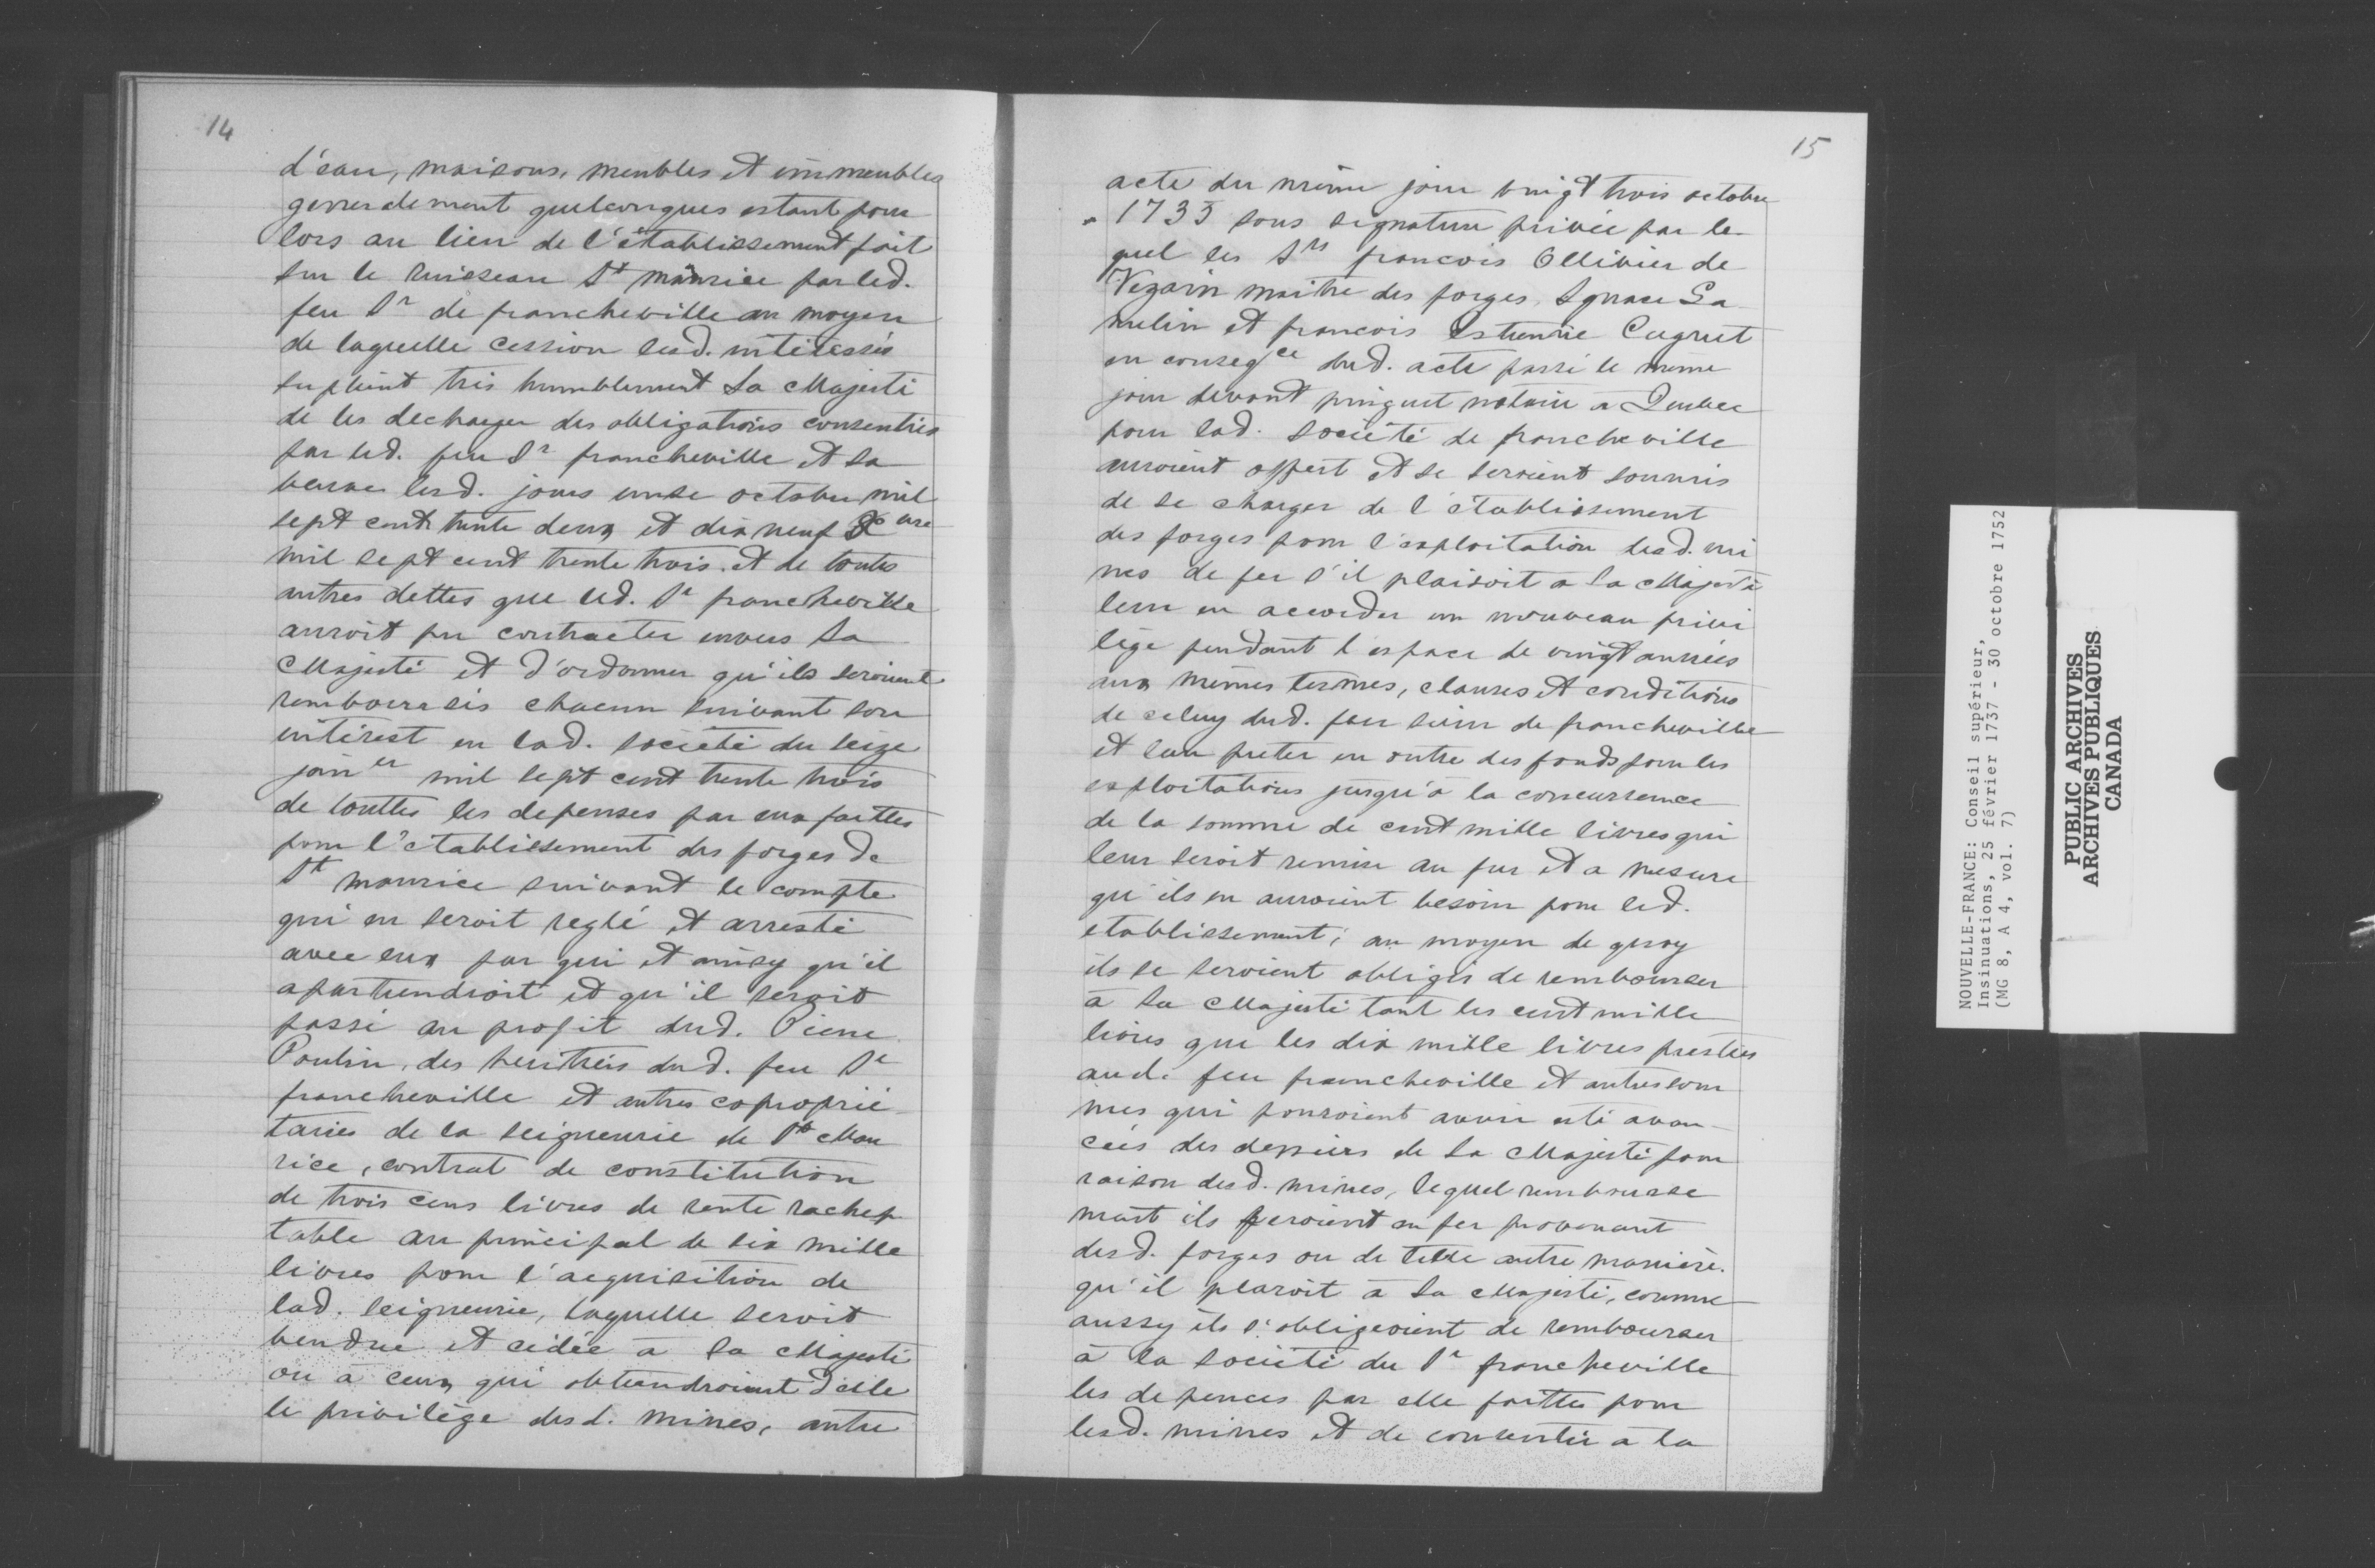 14
d'eau, maisons, meubles et immeubles
generalement quelconques estant pour
lors au lieu de l'établissement fait
sur le ruisseau St maurice par led.
feu Sr de francheville au moyen
de laquelle cession lesd. intéressés
suplient très humblement Sa Majesté
de les decharger des obligations consenties
par led. feu Sr francheville et sa
veuve lesd. jours onze octobre mil
sept cent trente deux et dix neuf
mil sept cent trente trois. et de toutes
autres dettes que led. Sr francheville
auroit pu contracter envers Sa
Majesté et d'ordonner qu'ils seroient
remboursés chacun suivant son
intérest en lad. société du seize
janer mil sept cent trente trois
de touttes les depenses par eux faittes
pour l'établissement des forges de
St maurice suivant le compte
qui en seroit reglé et arresté
avec eux par qui et ainsy qu'il
apartiendroit et qu'il seroit
passé au profit dud. Pierre
Poulin, des heritiers dud. feu Sr
francheville et autres coproprié
taires de la seigneurie de St Mau
rice, contrat de constitution
de trois cens livres de rente rachep
table au principal de six mille
livres pour l'acquisition de
lad. seigneurie, laquelle seroit
vendue et cédée à Sa Majesté
ou à ceux qui obtiendroient d'elle
le privilège desd. mines, autre
15
acte du même jour vingt trois octobre
1735 sous signature privée par le
quel les Srs francois Ollivier de
Vezain maitre des forges, Ignace Ga
melin et francois Estienne Cugnet
en conseqce dud. acte passé le même
jour devant pinguet notaire a Quebec
pour lad. société de francheville
auroient offert et se seroient soumis
de se charger de l'établissement
des forges pour l'exploitation desd. mi
nes de fer s'il plaisoit a Sa Majesté
leur en accorder un nouveau privi
lège pendant l'espace de vingt années
aux mêmes termes, clauses et conditions
de celuy dud. feu sieur de francheville
et leur preter en outre des fonds pour les
exploitations jusqu'à la concurrence
de la somme de cent mille livres qui
leur seroit remise au fur et a mesure
qu'ils en auroient besoin pour led.
etablissement; au moyen de quoy
ils se seroient obligés de rembourser
à Sa Majesté tant les cent mille
livres que les dix mille livres prestées
aud. feu francheville et autres som
mes qui pouroient avoir esté avan-
cées des deniers de Sa Majesté pour
raison desd. mines, lequel rembourse
ment ils feroient en fer provenant
desd. forges ou de telle autre manière.
qu'il plairoit à Sa Majesté, comme
aussy ils s'obligeoient de rembourser
à la société du Sr francheville
les depences par elle faittes pour
lesd. mines et de consentir a la
NOUVELLE-FRANCE: Conseil supérieur,
Insinuations, 25 février 1737 - 30 octobre 1752
(MG 8, A 4, vol. 7)
PUBLIC ARCHIVES
ARCHIVES PUBLIQUES
CANADA